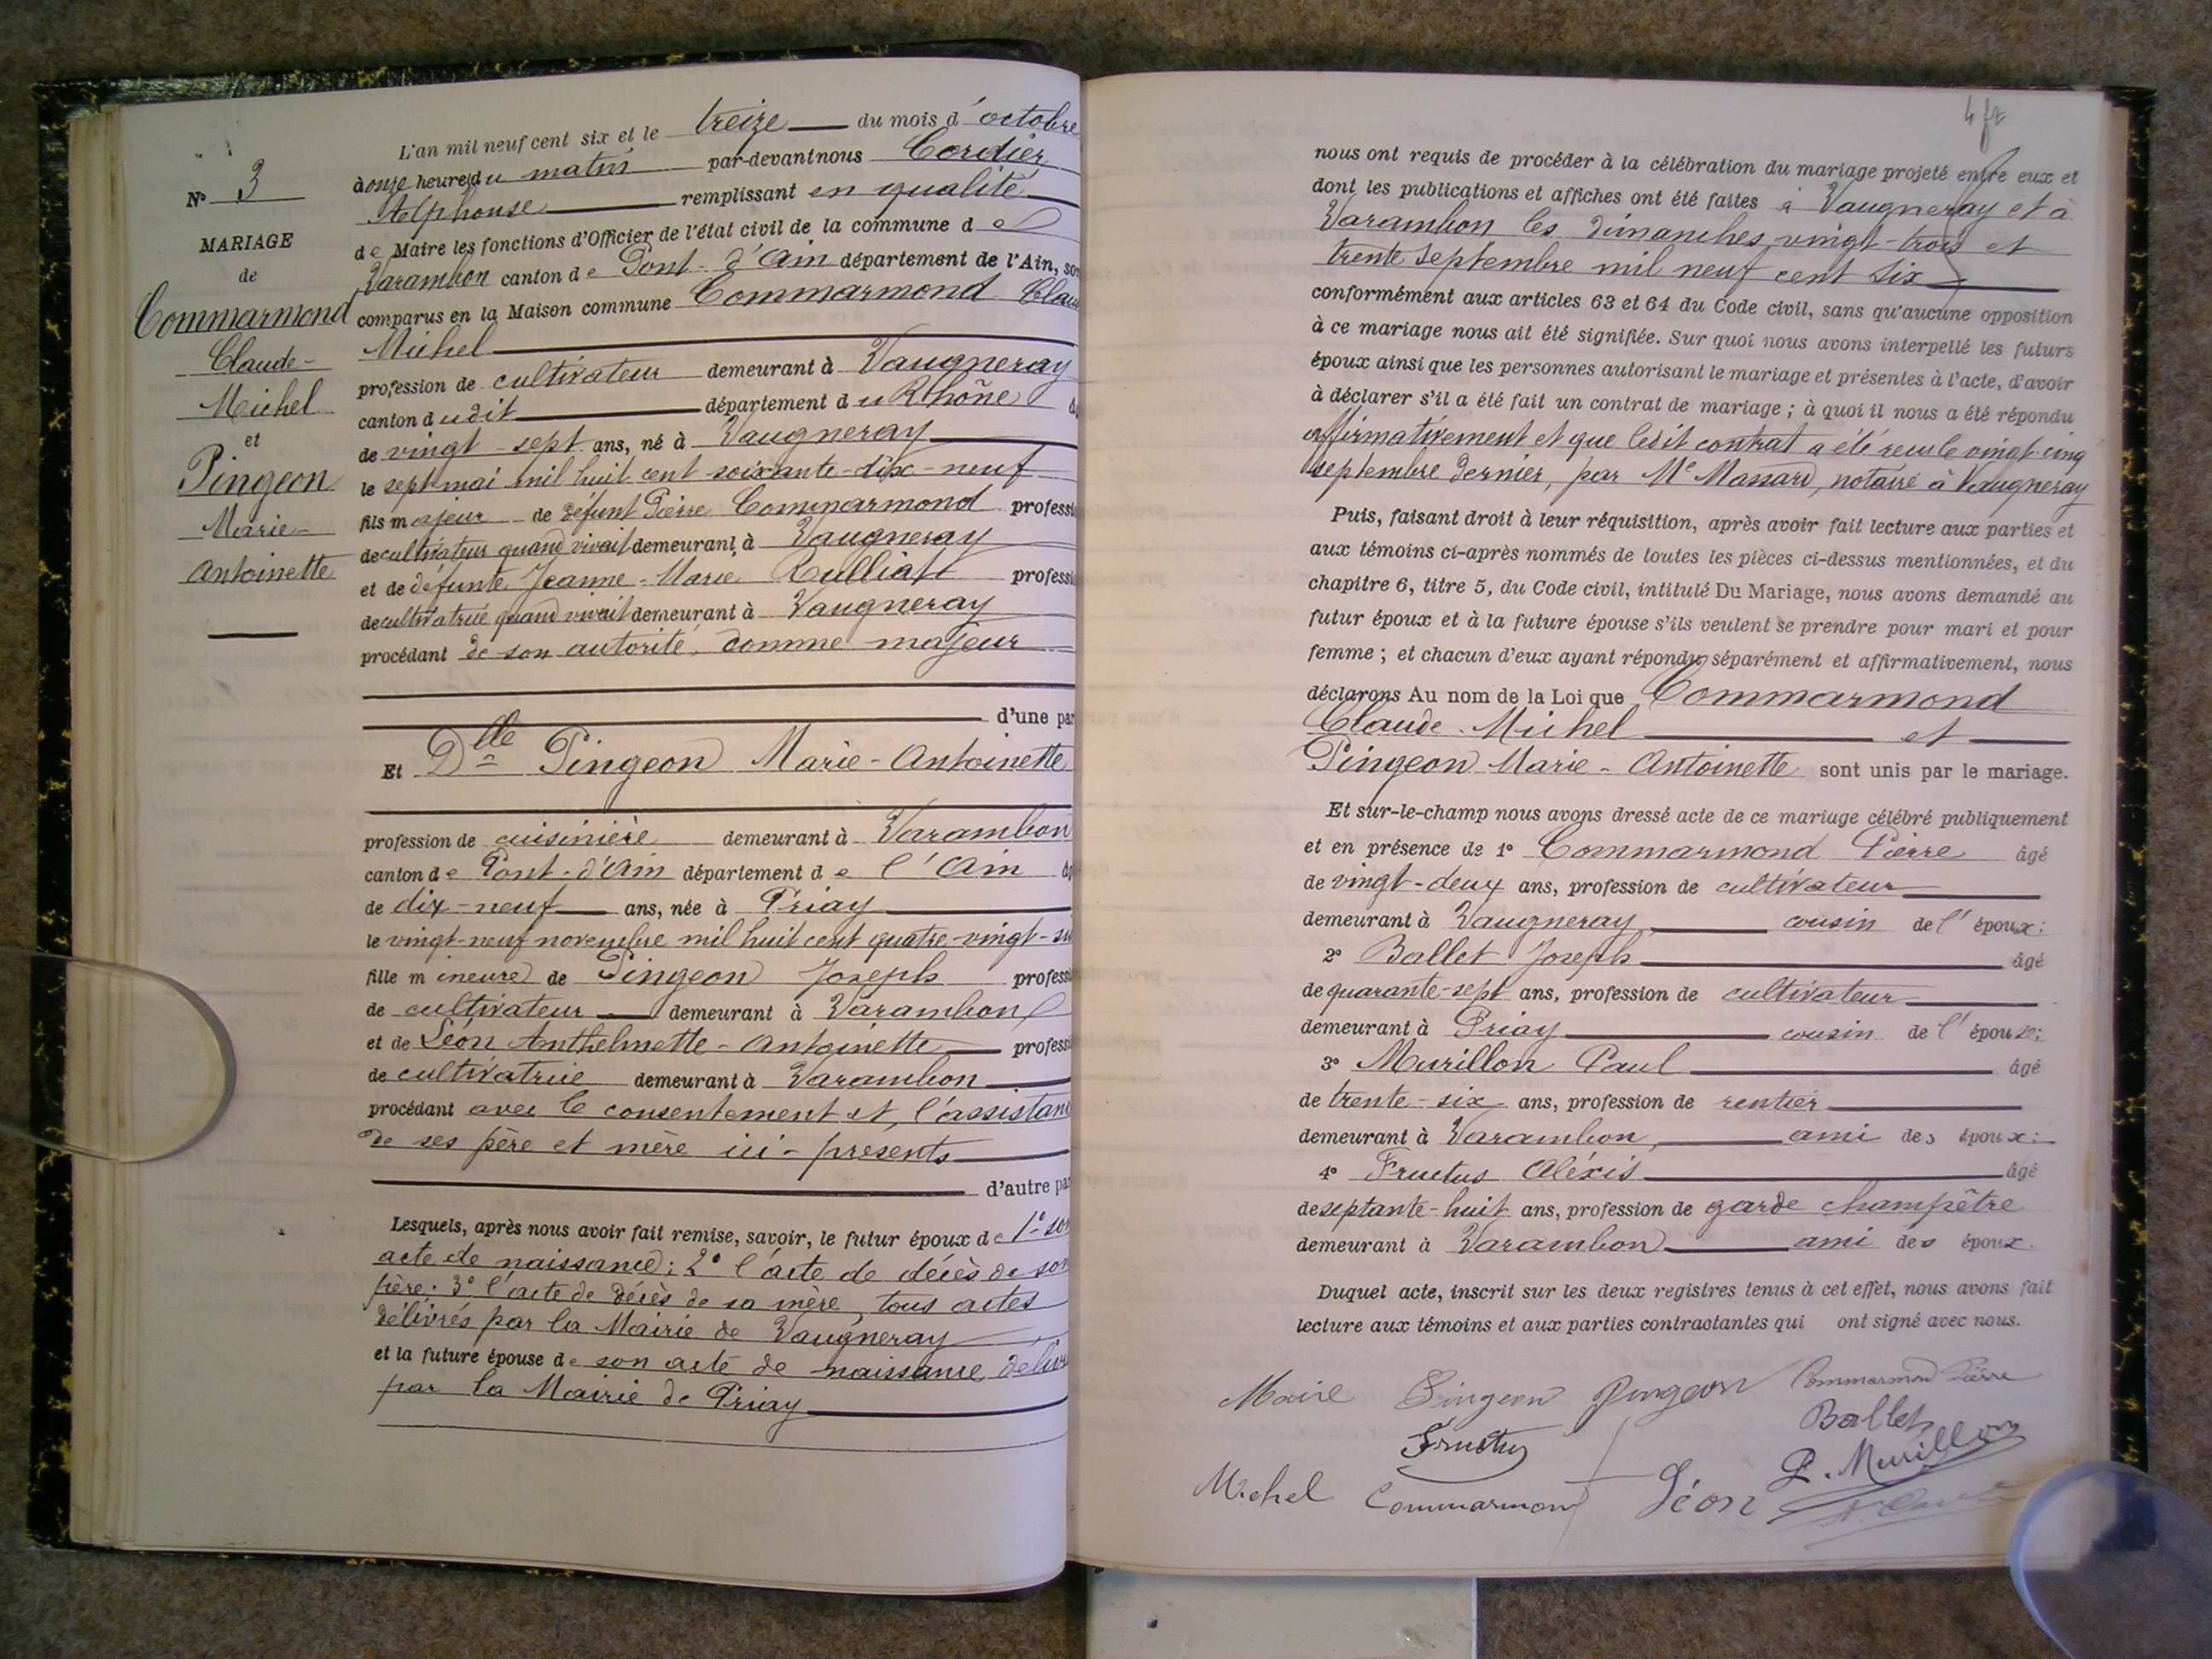 N° 3
MARIAGE
de
Commarmond
Claude-
Michel
et
Pingeon
Marie-
Antoinette
L'an mil neuf cent six et le treize du mois d'octobre
à onze heures du matin par-devant nous Cordier
Alphonse remplissant en qualité
de Maire les fonctions d'Officier de l'état civil de la commune de
Varambon canton de Pont-d'Ain département de l'Ain, so
comparus en la Maison commune Commarmond Clau
Michel
profession de cultivateur demeurant à Vaugneray
canton dudit département du Rhône
de vingt-sept ans, né à Vaugneray
le sept mai mil huit cent soixante-dix-neuf
fils majeur de défunt Pierre Commarmond professi
de cultivateur quand vivait demeurant à Vaugneray
et de défunte Jeanne-Marie Rulliat professi
de cultivatrice quand vivait demeurant à Vaugneray
procédant de son autorité, comme majeur
d'une par
Et Dlle Pingeon Marie-Antoinette
profession de cuisinière demeurant à Varambon
canton de Pont-d'Ain département de l'Ain
de dix-neuf ans, née à Priay
le vingt-neuf novembre mil huit cent quatre-vingt-si
fille mineure de Pingeon Joseph professi
de cultivateur demeurant à Varambon
et de Léon Anthelmette-Antoinette professi
de cultivatrice demeurant à Varambon
procédant avec le consentement et l'assistanc
de ses père et mère ici-présents
d'autre par
Lesquels, après nous avoir fait remise, savoir, le futur époux de 1° son
acte de naissance; 2° l'acte de décès de son
père; 3° l'acte de décès de sa mère, tous actes
délivrés par la Mairie de Vaugneray
et la future épouse de son acte de naissance délivr
par la Mairie de Priay
nous ont requis de procéder à la célébration du mariage projeté entre eux et
dont les publications et affiches ont été faites à Vaugneray et à
Varambon les dimanches vingt-trois et
trente septembre mil neuf cent six
conformément aux articles 63 et 64 du Code civil, sans qu'aucune opposition
à ce mariage nous ait été signifiée. Sur quoi nous avons interpellé les futurs
époux ainsi que les personnes autorisant le mariage et présentes à l'acte, d'avoir
à déclarer s'il a été fait un contrat de mariage ; à quoi il nous a été répondu
affirmativement et que ledit contrat a été reçu le vingt-cinq
septembre dernier, par Me Manard, notaire à Vaugneray
Puis, faisant droit à leur réquisition, après avoir fait lecture aux parties et
aux témoins ci-après nommés de toutes les pièces ci-dessus mentionnées, et du
chapitre 6, titre 5, du Code civil, intitulé Du Mariage, nous avons demandé au
futur époux et à la future épouse s'ils veulent se prendre pour mari et pour
femme ; et chacun d'eux ayant répondu séparément et affirmativement, nous
déclarons Au nom de la Loi que Commarmond
Claude-Michel et
Pingeon Marie-Antoinette sont unis par le mariage.
Et sur-le-champ nous avons dressé acte de ce mariage célébré publiquement
et en présence de 1° Commarmond Pierre âgé
de vingt-deux ans, profession de cultivateur
demeurant à Vaugneray, cousin de l'époux;
2° Ballet Joseph âgé
de quarante-sept ans, profession de cultivateur
demeurant à Priay cousin de l'épouse;
3° Murillon Paul âgé
de trente-six ans, profession de rentier
demeurant à Varambon, ami des époux;
4° Fructus Alexis âgé
de septante-huit ans, profession de garde champêtre
demeurant à Varambon ami des époux.
Duquel acte, inscrit sur les deux registres tenus à cet effet, nous avons fait
lecture aux témoins et aux parties contractantes qui ont signé avec nous.
Marie Pingeon Pingeon Commarmond Pierre
Fructus Ballet
P. Murillon
Michel Commarmond Léon